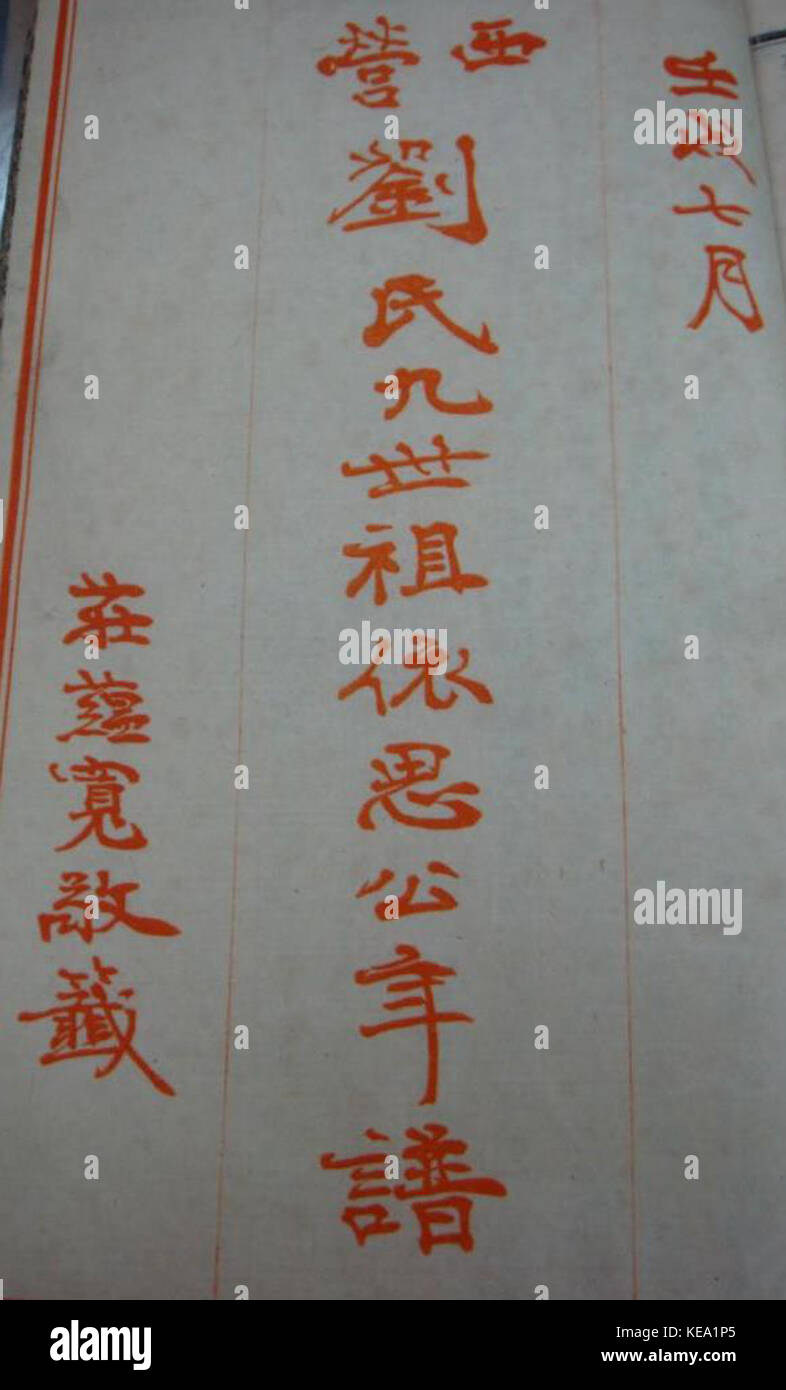 壬戌七月
西營
劉氏九世祖依思公年譜
莊蘊寬敬籤
alamy
a
alamy
Image ID: KEA1P5
www.alamy.com